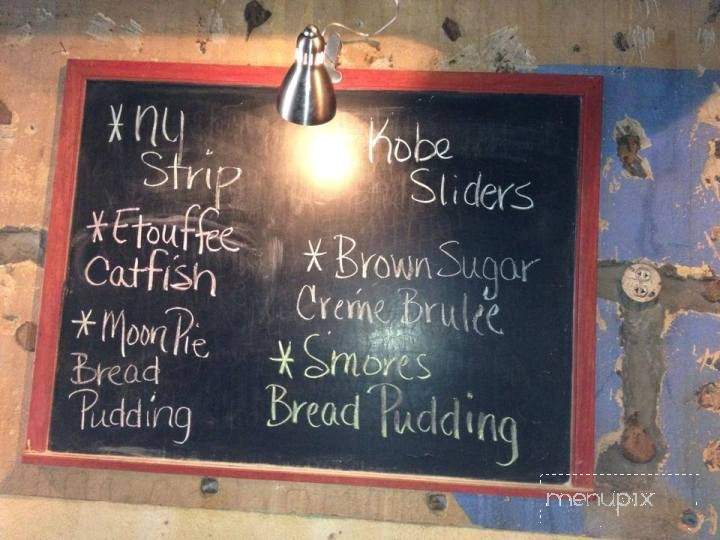 *NY
Strip
*Etouffee
Catfish
*MoonPie
Bread
Pudding
Kobe
Sliders
*Brown Sugar
Creme Brulee
*S'mores
Bread Pudding
menupix